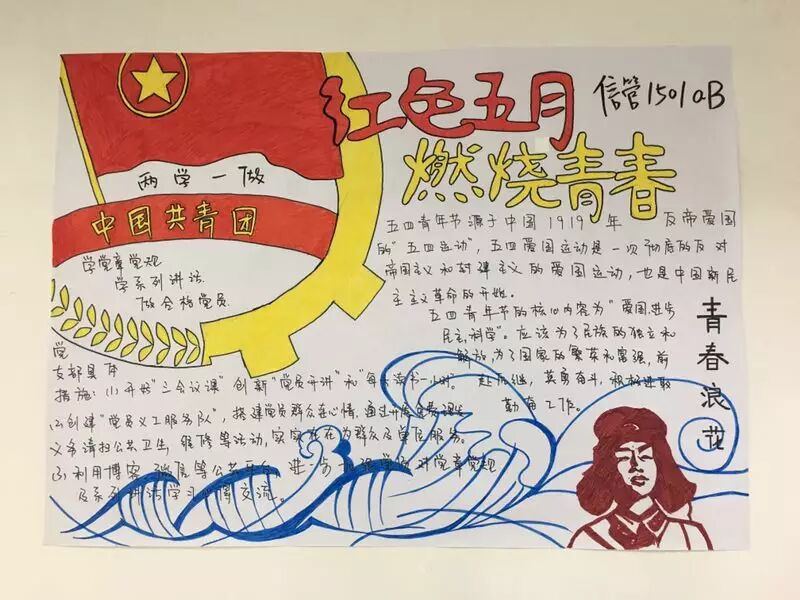 红色五月
信管1501aB
燃烧青春
两学一做
中国共青团
学党章党规
学系列讲话
做合格党员
五四青年节源于中国1919年 反帝爱国
的"五四运动",五四爱国运动是一次彻底的反对
帝国主义和封建主义的爱国运动,也是中国新民
主主义革命的开始。
五四青年节的核心内容为"爱国进步
民主科学"。应该为了民族的独立和
解放,为了国家的繁荣和富强,前
赴后继,英勇奋斗,积极进取
勤奋工作。
青春浪花
党
支部具体
措施:(1)开好"三会议课"创新"党员开讲"和"每天读书一小时。
(2)创建"党员义工服务队",搭建党员群众连心情,通过开展
义务清扫公共卫生,维修等活动,实实在在为群众及军民服务。
(3)利用博客 微信等公共平台 进一步 党员对党章党规
及系列讲话学习 交流。